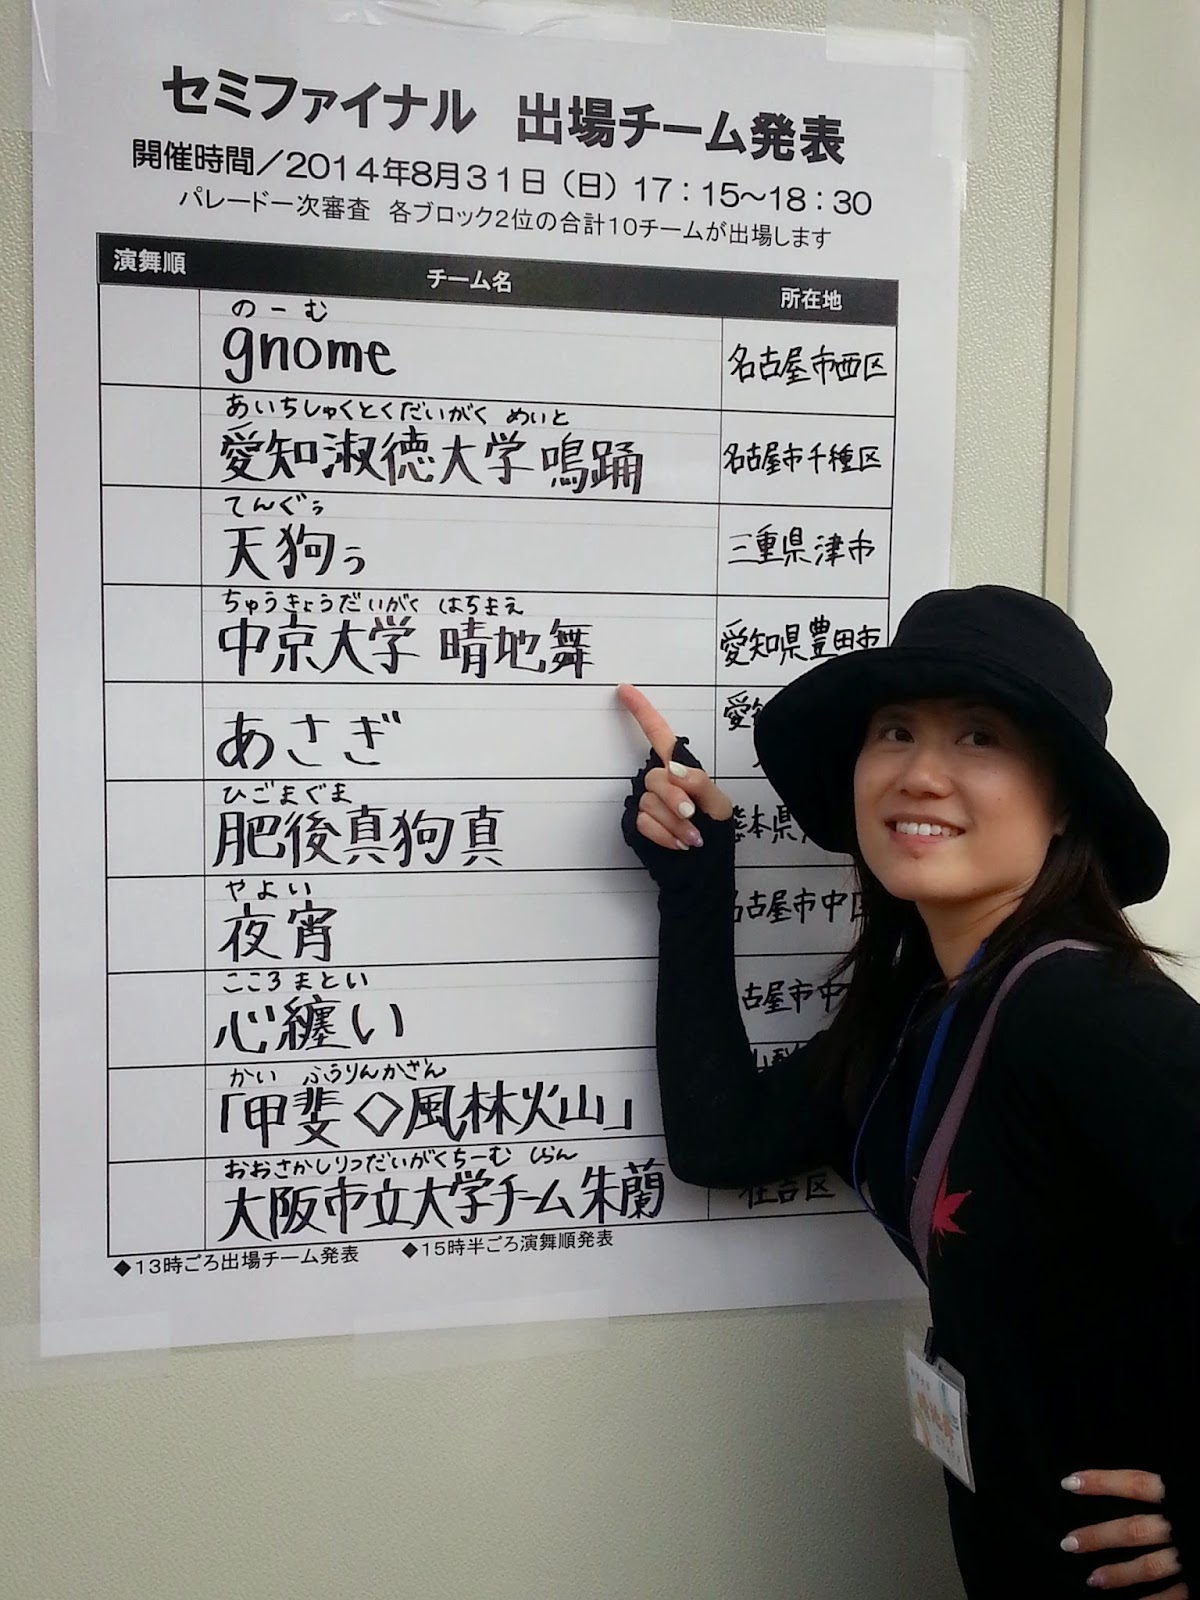 セミファイナル 出場チーム発表
開催時間/2014年8月31日(日)17:15~18:30
パレード一次審査 各ブロック2位の合計10チームが出場します
演舞順 チーム名 所在地
のーむ
gnome 名古屋市西区
あいちしゅくとくだいがく めいと
愛知淑徳大学 鳴踊 名古屋市千種区
てんぐぅ
天狗ぅ 三重県津市
ちゅうきょうだいがく はちまえ
中京大学 晴地舞 愛知県豊田市
あさぎ 愛
ひごまぐま
肥後真狗真 熊本県
やよい
夜宵 名古屋市中区
こころまとい
心纏い 古屋市中
かい ふうりんかざん
「甲斐◇風林火山」
おおさかしりつだいがくちーむ しらん
大阪市立大学チーム朱蘭 住吉区
◆13時ごろ出場チーム発表 ◆15時半ごろ演舞順発表